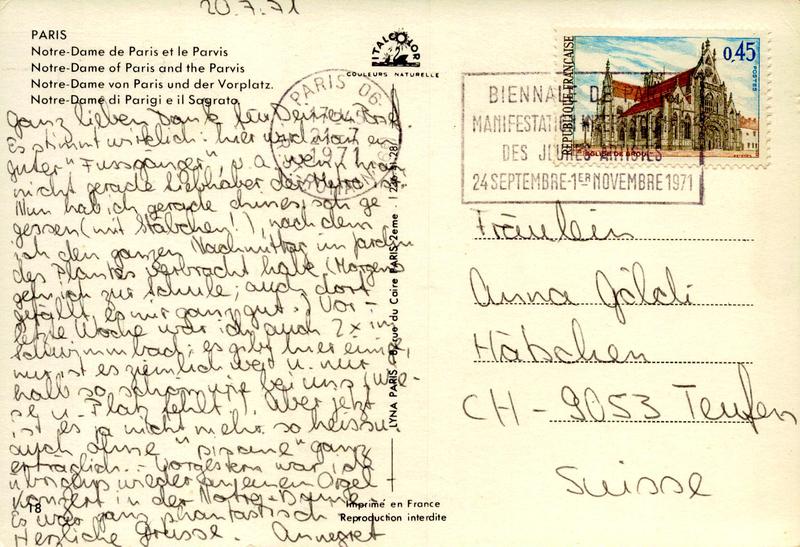 20.7.71
PARIS
Notre-Dame de Paris et le Parvis
Notre-Dame of Paris and the Parvis
Notre-Dame von Paris und der Vorplatz.
Notre-Dame di Parigi e il Sagrato
ITALCOLOR
COULEURS NATURELLE
Ganz lieben Dank für Deinen Brief.
Es stimmt wirklich: hier wird man ein
guter "Fussgänger", v.a. wenn man
nicht gerade Liebhaber der Métro ist.
Nun hab ich gerade chinesisch ge
gessen (mit Stäbchen!), nachdem
ich den ganzen Nachmittag im Jardin
des Plantes verbracht habe. (Morgens
geh ich zur Schule; auch dort
gefällt es mir ganz gut.) Vor-
letzte Woche war ich auch 2x im
Schwimmbad; es gibt hier eines,
nur ist es ziemlich weit u. nur
halb so schön wie bei uns (Wie-
se u. Platz fehlt!). Aber jetzt
ist es ja nicht mehr so heiss u.
auch ohne "piscine" ganz
erträglich. - Vorgestern war ich
übrigens wieder an einem Orgel-
konzert in der Notre-Dame.
Es war ganz phantastisch
Herzliche Grüsse. Annegret
18
LYNA PARIS - rue du Caire PARIS 2eme.
Imprimé en France
Reproduction interdite
PARIS 06
1971
BIENNALE DE PARIS
MANIFESTATION
DES JEUNES ARTISTES
24 SEPTEMBRE-1ER NOVEMBRE 1971
REPUBLIQUE FRANÇAISE
0,45
POSTES
Fräulein
Anna Göldi
Hätschen
CH - 9053 Teufen
Suisse